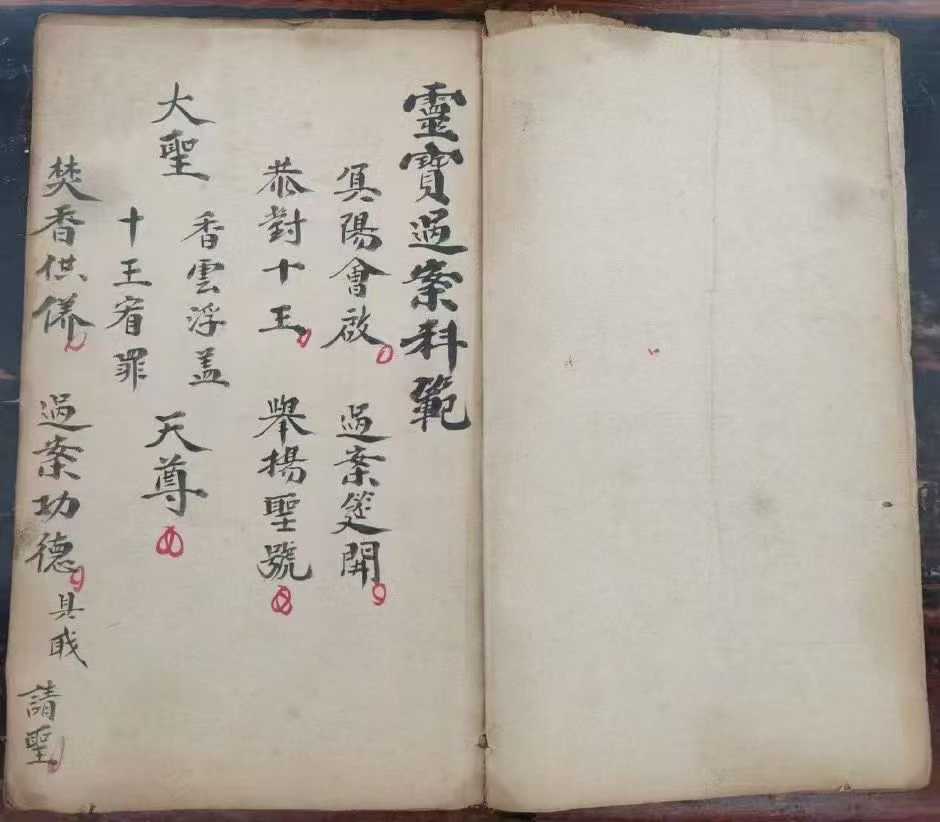 靈寶過案科範
冥陽會啟 過案筵開
恭對十王 舉揚聖號
大聖 香雲浮盖 十王宥罪 天尊
焚香供養 過案功德 具戝 請聖